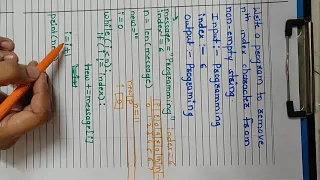 Write a program to remove
nth index character from
non-empty string
Input :- Programming
index :- 6
output :- Programing
message = "Programming"
index = 6
n = len(message)
new = ""
i = 0
while (i < n):
if (i != index):
new += message[i]
i = i+1
print(
index = 6
n = 11
i = 0